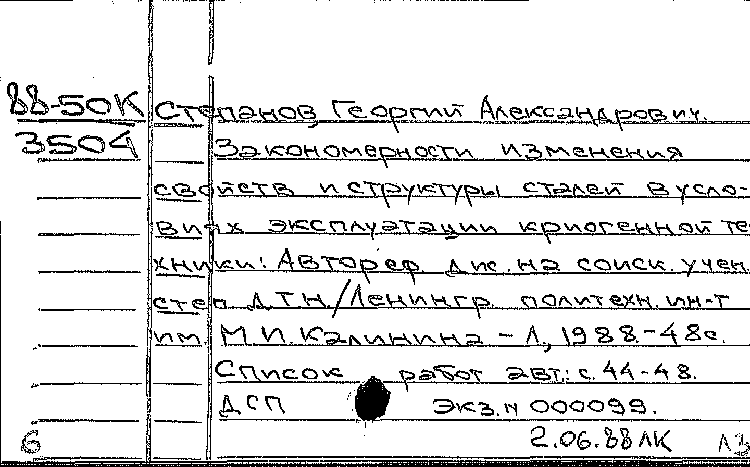 88-50К Степанов, Георгий Александрович.
3504 Закономерности изменения
свойств и структуры сталей в усло-
виях эксплуатации криогенной те
хники: Автореф. дис. на соиск. учен.
степ. Д.Т.Н./Ленингр. политехн. ин-т
им. М.И. Калинина - Л., 1988.-48с.
Список работ авт.: с. 44-48.
ДСП Экз. N 000099.
6 2.06.88 ЛК